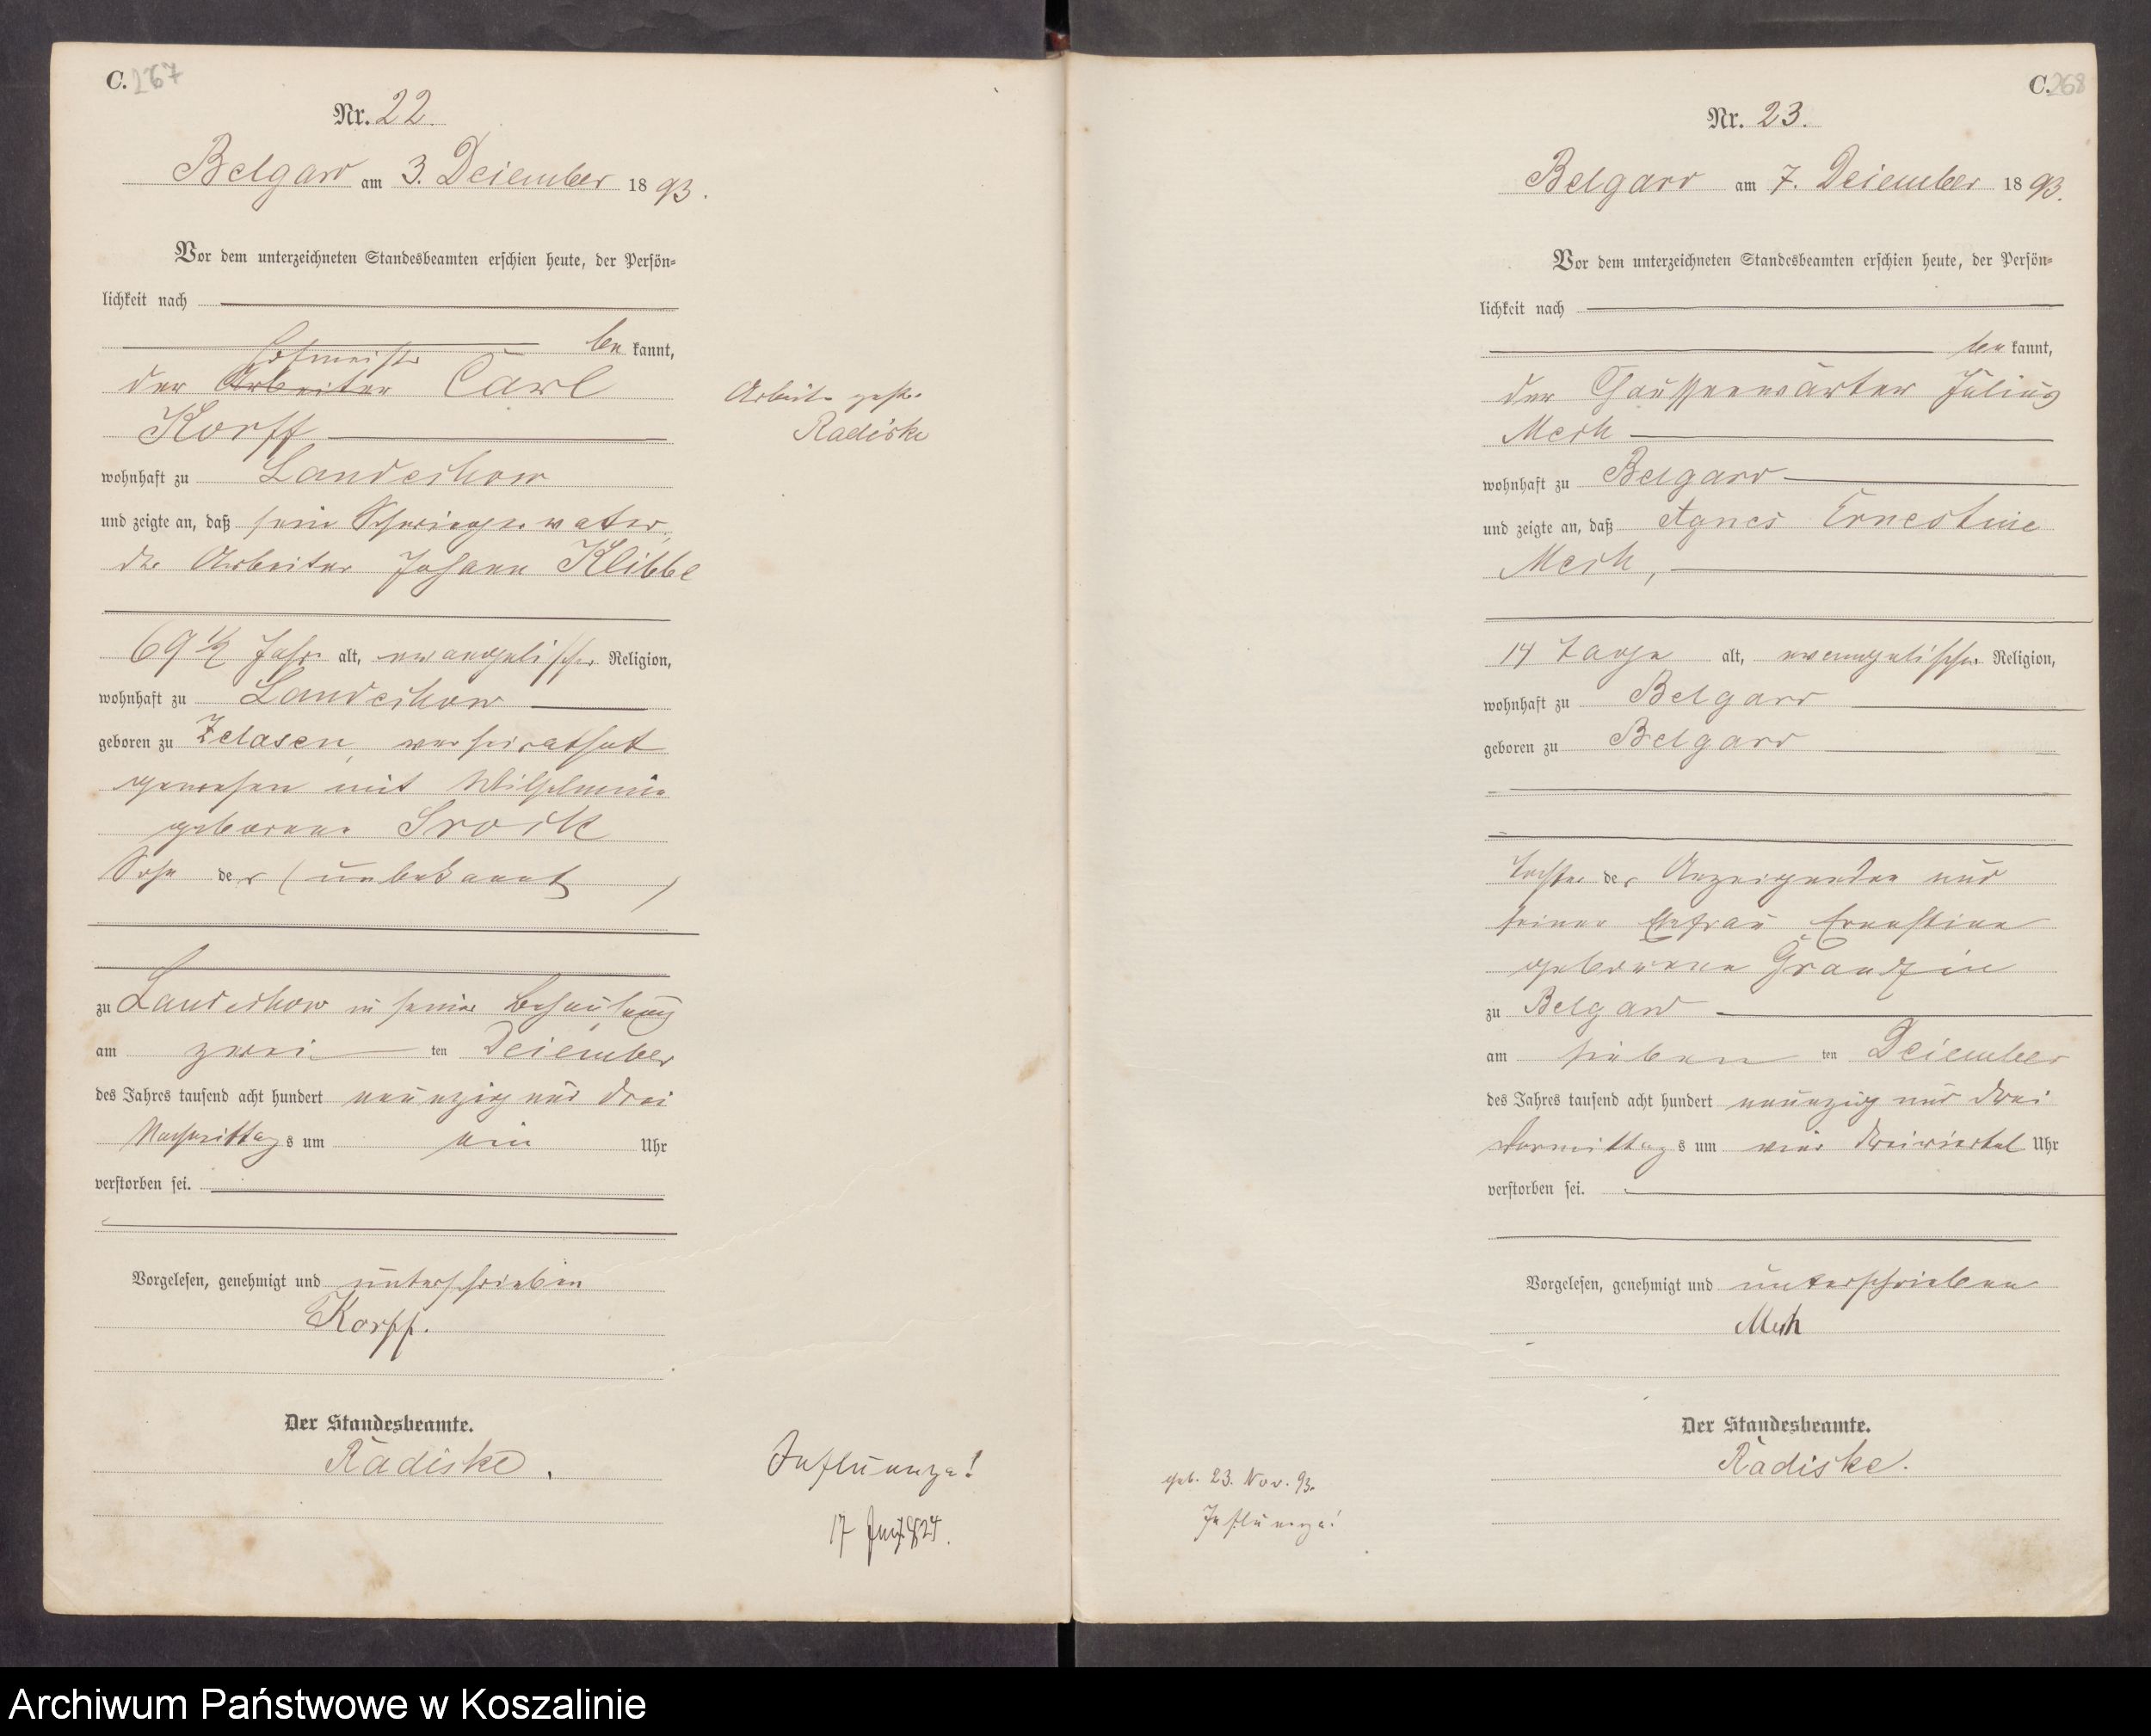 C. 267
Nr. 22.
Belgard am 3. Dezember 18 93.
Vor dem unterzeichneten Standesbeamten erschien heute, der Persön=
lichkeit nach
be kannt,
Hofmeister
der Arbeiter Carl
Korff
wohnhaft zu Landechow
und zeigte an, daß sein Schwiegervater,
der Arbeiter Johann Klibbe
69 1/2 Jahr alt, evangelischer Religion,
wohnhaft zu Landechow
geboren zu Zelasen, verheirathet
gewesen mit Wilhelmine
geborene
Sohn der (unbekannt)
zu Landechow in seiner Behausung
am zwei ten Dezember
des Jahres tausend acht hundert neunzig und drei
Nachmittags um ein Uhr
verstorben sei.
Vorgelesen, genehmigt und unterschrieben
Korff.
Der Standesbeamte.
Radiske.
Arbeiter gestr.
Radiske
Influenza!
17 1824.
C. 268
Nr. 23.
Belgard am 7. Dezember 18 93.
Vor dem unterzeichneten Standesbeamten erschien heute, der Persön=
lichkeit nach
be kannt,
der Chausseewärter Julius
Mesch
wohnhaft zu Belgard
und zeigte an, daß Agnes Ernestine
Mesch,
14 Tage alt, evangelischer Religion,
wohnhaft zu Belgard
geboren zu Belgard
Tochter des Anzeigenden und
seiner Ehefrau Ernestine
geborene Grandzin
zu Belgard
am sieben ten Dezember
des Jahres tausend acht hundert neunzig und drei
Vormittags um vier dreiviertel Uhr
verstorben sei.
Vorgelesen, genehmigt und unterschrieben
Mesch
Der Standesbeamte.
Radiske.
geb. 23. Nov. 93.
Influenza!
Archiwum Państwowe w Koszalinie